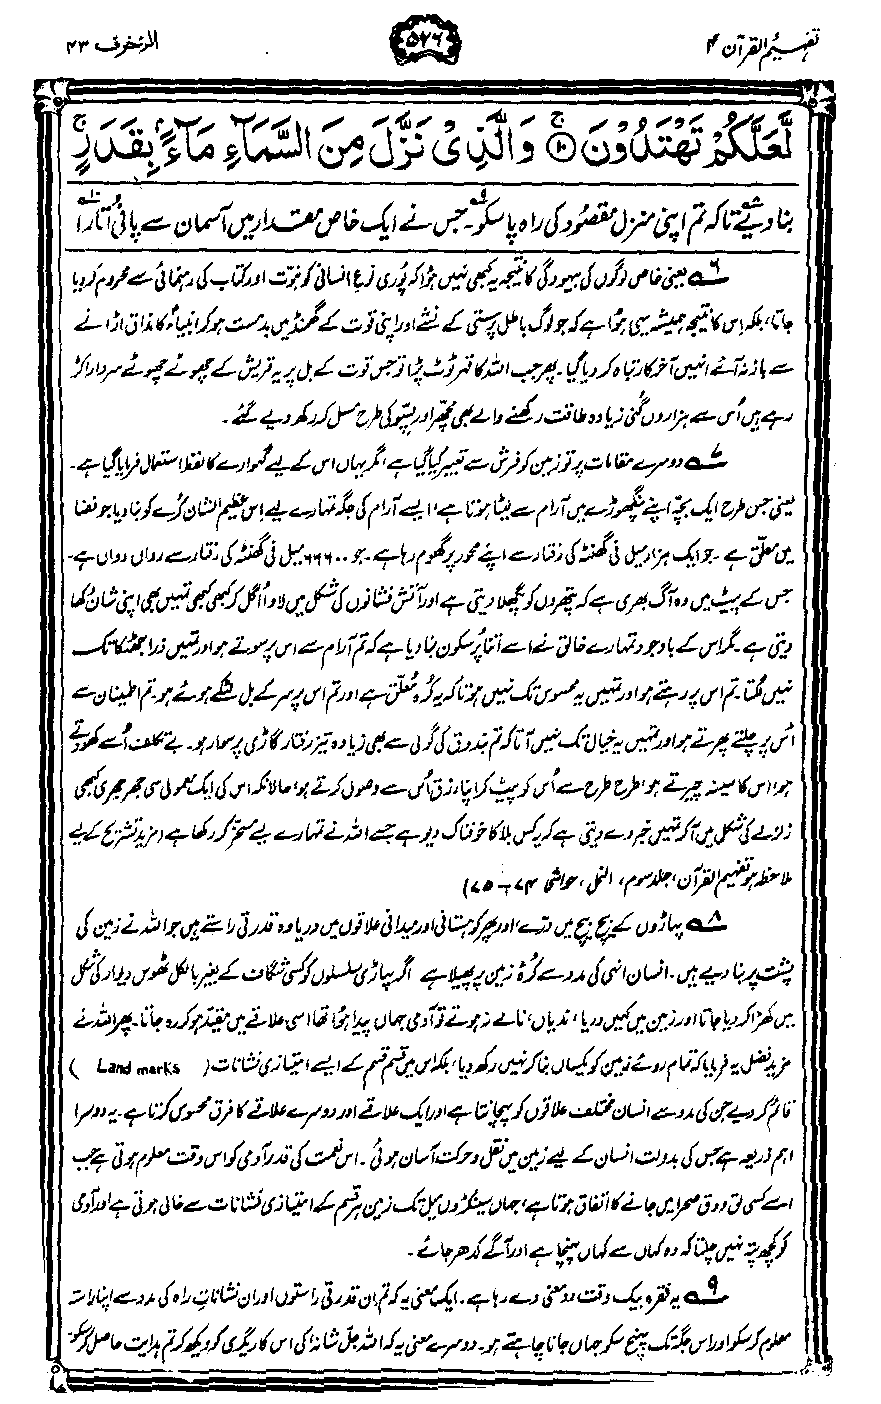 تفہیم القرآن ۴
۵۲۶
الزخرف ۴۳
لَّعَلَّكُمْ تَهْتَدُوْنَ ﴿۱۰﴾ ۚ وَالَّذِیْ نَزَّلَ مِنَ السَّمَآءِ مَآءًۢ بِقَدَرٍ ۚ
بنا دیے تاکہ تم اپنی منزل مقصود کی راہ پا سکو۔ جس نے ایک خاص مقدار میں آسمان سے پانی اُتارا
۶ یعنی خاص لوگوں کی بیہودگی کا نتیجہ یہ کبھی نہیں ہوا کہ پُوری نوع انسانی کو نبوت اور کتاب کی رہنمائی سے محروم کر دیا
جاتا، بلکہ اس کا نتیجہ ہمیشہ یہی ہوا ہے کہ جو لوگ باطل پرستی کے نشے اور اپنی قوت کے گھمنڈ میں بدمست ہو کر انبیاء کا مذاق اڑانے
سے باز نہ آئے انہیں آخر کار تباہ کر دیا گیا۔ پھر جب اللہ کا قہر ٹوٹ پڑا تو جس قوت کے بل پر یہ قریش کے چھوٹے چھوٹے سردار اکڑ
رہے ہیں اُس سے ہزاروں گنی زیادہ طاقت رکھنے والے بھی مچھر اور پسّو کی طرح مسل کر رکھ دیے گئے۔
۷ دوسرے مقامات پر تو زمین کو فرش سے تعبیر کیا گیا ہے، مگر یہاں اس کے لیے گہوارے کا لفظ استعمال فرمایا گیا ہے۔
یعنی جس طرح ایک بچہ اپنے پنگھوڑے میں آرام سے لیٹا ہوتا ہے، ایسے آرام کی جگہ تمہارے لیے اِس عظیم الشان کُرے کو بنا دیا جو فضا
میں معلق ہے۔ جو ایک ہزار میل فی گھنٹہ کی رفتار سے اپنے محور پر گھوم رہا ہے۔ جو ۶۶۶۰۰ میل فی گھنٹہ کی رفتار سے رواں دواں ہے۔
جس کے پیٹ میں وہ آگ بھری ہے کہ پتھروں کو پگھلا دیتی ہے اور آتش فشانوں کی شکل میں لاوا اُگل کر کبھی کبھی تمہیں بھی اپنی شان دکھا
دیتی ہے۔ مگر اس کے باوجود تمہارے خالق نے اسے اتنا پُرسکون بنا دیا ہے کہ تم آرام سے اس پر سوتے ہو اور تمہیں ذرا جھٹکا تک
نہیں لگتا۔ تم اس پر رہتے ہو اور تمہیں یہ محسوس تک نہیں ہوتا کہ یہ کُرہ مُعلّق ہے اور تم اس پر سر کے بل لٹکے ہوئے ہو۔ تم اطمینان سے
اُس پر چلتے پھرتے ہو اور تمہیں یہ خیال تک نہیں آتا کہ تم بندوق کی گولی سے بھی زیادہ تیز رفتار گاڑی پر سوار ہو۔ بے تکلف اُسے کھودتے
ہو، اس کا سینہ چیرتے ہو، طرح طرح سے اُس کو پیٹ کر اپنا رزق اُس سے وصول کرتے ہو، حالانکہ اس کی ایک معمولی سی جھرجھری کبھی
زلزلے کی شکل میں آ کر تمہیں خبر دے دیتی ہے کہ یہ کس بلا کا خوفناک دیو ہے جسے اللہ نے تمہارے لیے مسخر کر رکھا ہے (مزید تشریح کے لیے
ملاحظہ ہو تفہیم القرآن، جلد سوم، النمل، حواشی ۷۴ – ۷۵)
۸ پہاڑوں کے بیچ بیچ میں درّے، اور پھر کوہستانی اور میدانی علاقوں میں دریا وہ قدرتی راستے ہیں جو اللہ نے زمین کی
پشت پر بنا دیے ہیں۔ انسان انہی کی مدد سے کُرۂ زمین پر پھیلا ہے اگر پہاڑی سلسلوں کو کسی شگاف کے بغیر بالکل ٹھوس دیوار کی شکل
میں کھڑا کر دیا جاتا اور زمین میں کہیں دریا، ندیاں، نالے نہ ہوتے تو آدمی جہاں پیدا ہُوا تھا اسی علاقے میں مقید ہو کر رہ جاتا۔ پھر اللہ نے
مزید فضل یہ فرمایا کہ تمام روئے زمین کو یکساں بنا کر نہیں رکھ دیا، بلکہ اس میں قسم قسم کے ایسے امتیازی نشانات ( Land marks )
قائم کر دیے جن کی مدد سے انسان مختلف علاقوں کو پہچانتا ہے اور ایک علاقے اور دوسرے علاقے کا فرق محسوس کرتا ہے۔ یہ دوسرا
اہم ذریعہ ہے جس کی بدولت انسان کے لیے زمین میں نقل و حرکت آسان ہوئی۔ اس نعمت کی قدر آدمی کو اس وقت معلوم ہوتی ہے جب
اسے کسی لق و دق صحرا میں جانے کا اتفاق ہوتا ہے، جہاں سینکڑوں میل تک زمین ہر قسم کے امتیازی نشانات سے خالی ہوتی ہے اور آدمی
کو کچھ پتہ نہیں چلتا کہ وہ کہاں سے کہاں پہنچا ہے اور آگے کدھر جائے۔
۹ یہ فقرہ بیک وقت دو معنی دے رہا ہے۔ ایک معنی یہ کہ تم ان قدرتی راستوں اور ان نشاناتِ راہ کی مدد سے اپنا راستہ
معلوم کر سکو اور اس جگہ تک پہنچ سکو جہاں جانا چاہتے ہو۔ دوسرے معنی یہ کہ اللہ جلّ شانہٗ کی اس کاریگری کو دیکھ کر تم ہدایت حاصل کر سکو